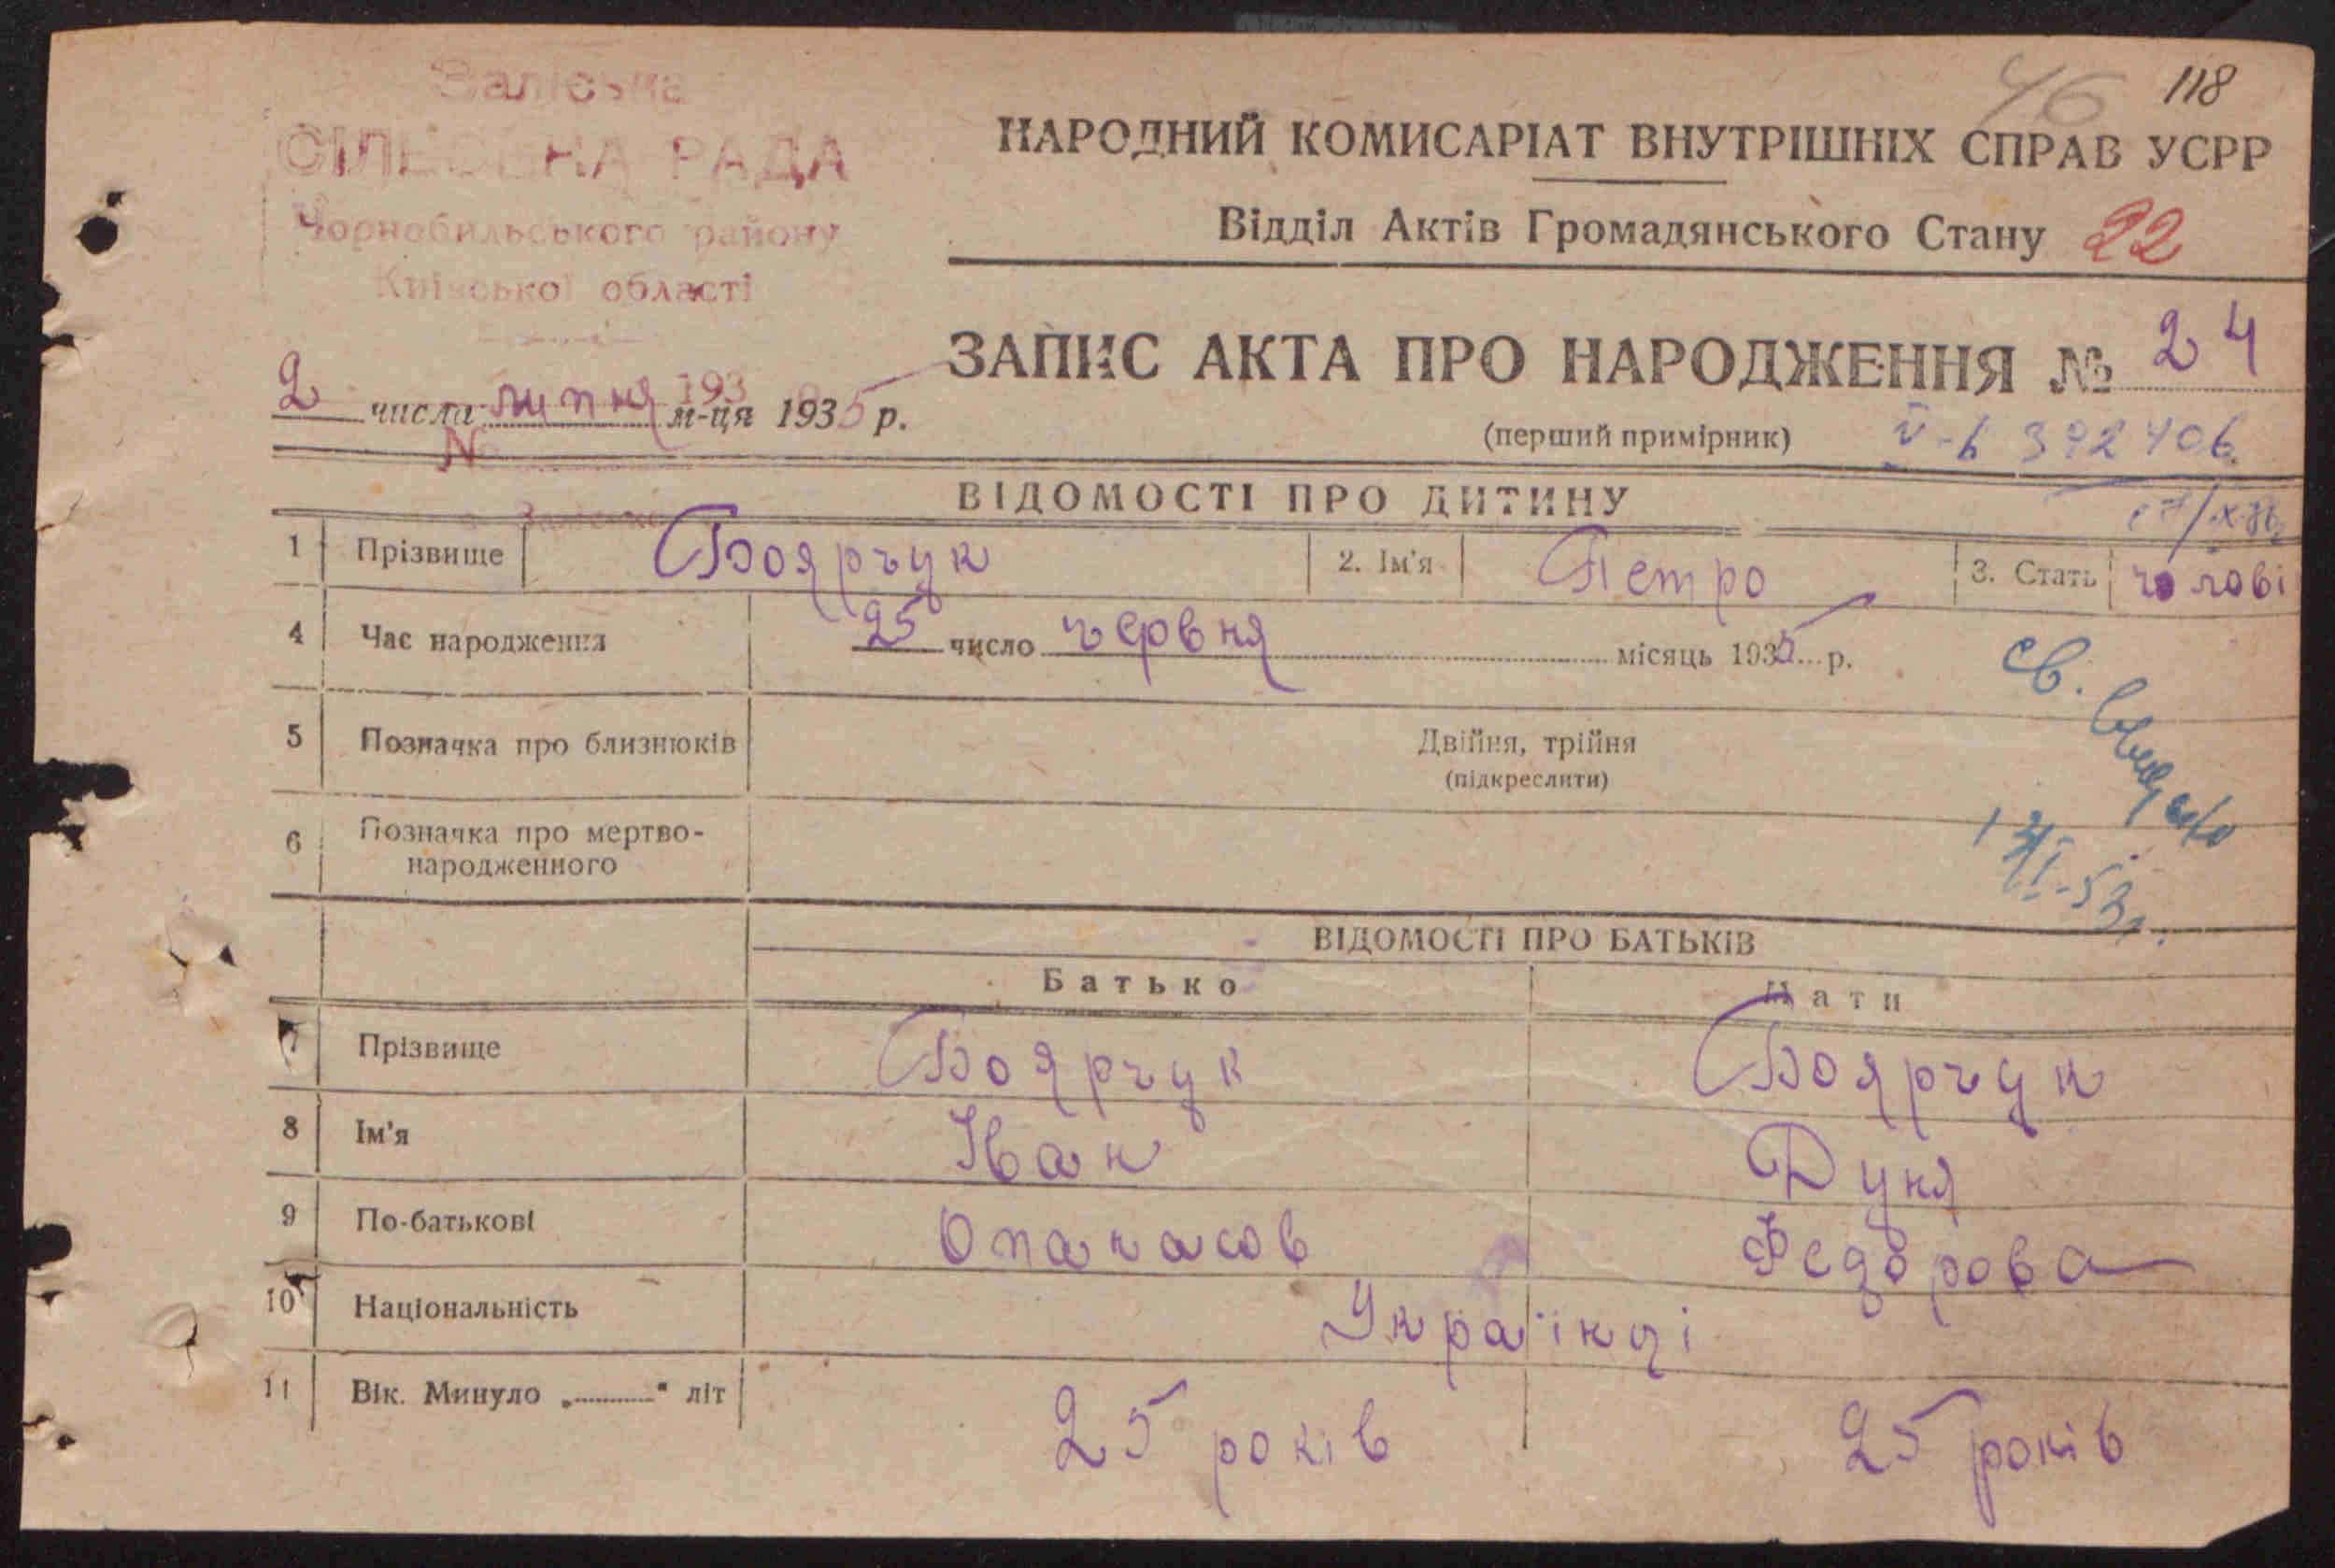 118
46
Заліська
СІЛЬСЬКА РАДА
Чорнобильського району
Київської області
193
№
НАРОДНИЙ КОМИСАРІАТ ВНУТРІШНІХ СПРАВ УСРР
Відділ Актів Громадянського Стану 22
ЗАПИС АКТА ПРО НАРОДЖЕННЯ № 24
2 числа липня м-ця 1935 р.
(перший примірник)
ВІДОМОСТІ ПРО ДИТИНУ
1 Прізвище Боярчук 2. Ім'я Петро 3. Стать чолові
4 Час народження 25 число червня місяць 1935 р.
5 Позначка про близнюків Двійня, трійня
(підкреслити)
6 Позначка про мертво-
народженного
ВІДОМОСТІ ПРО БАТЬКІВ
Батько Мати
7 Прізвище Боярчук Боярчук
8 Ім'я Іван Дуня
9 По-батькові Опанасов Федорова
10 Національність Українці
11 Вік. Минуло „ " літ 25 років 25 років